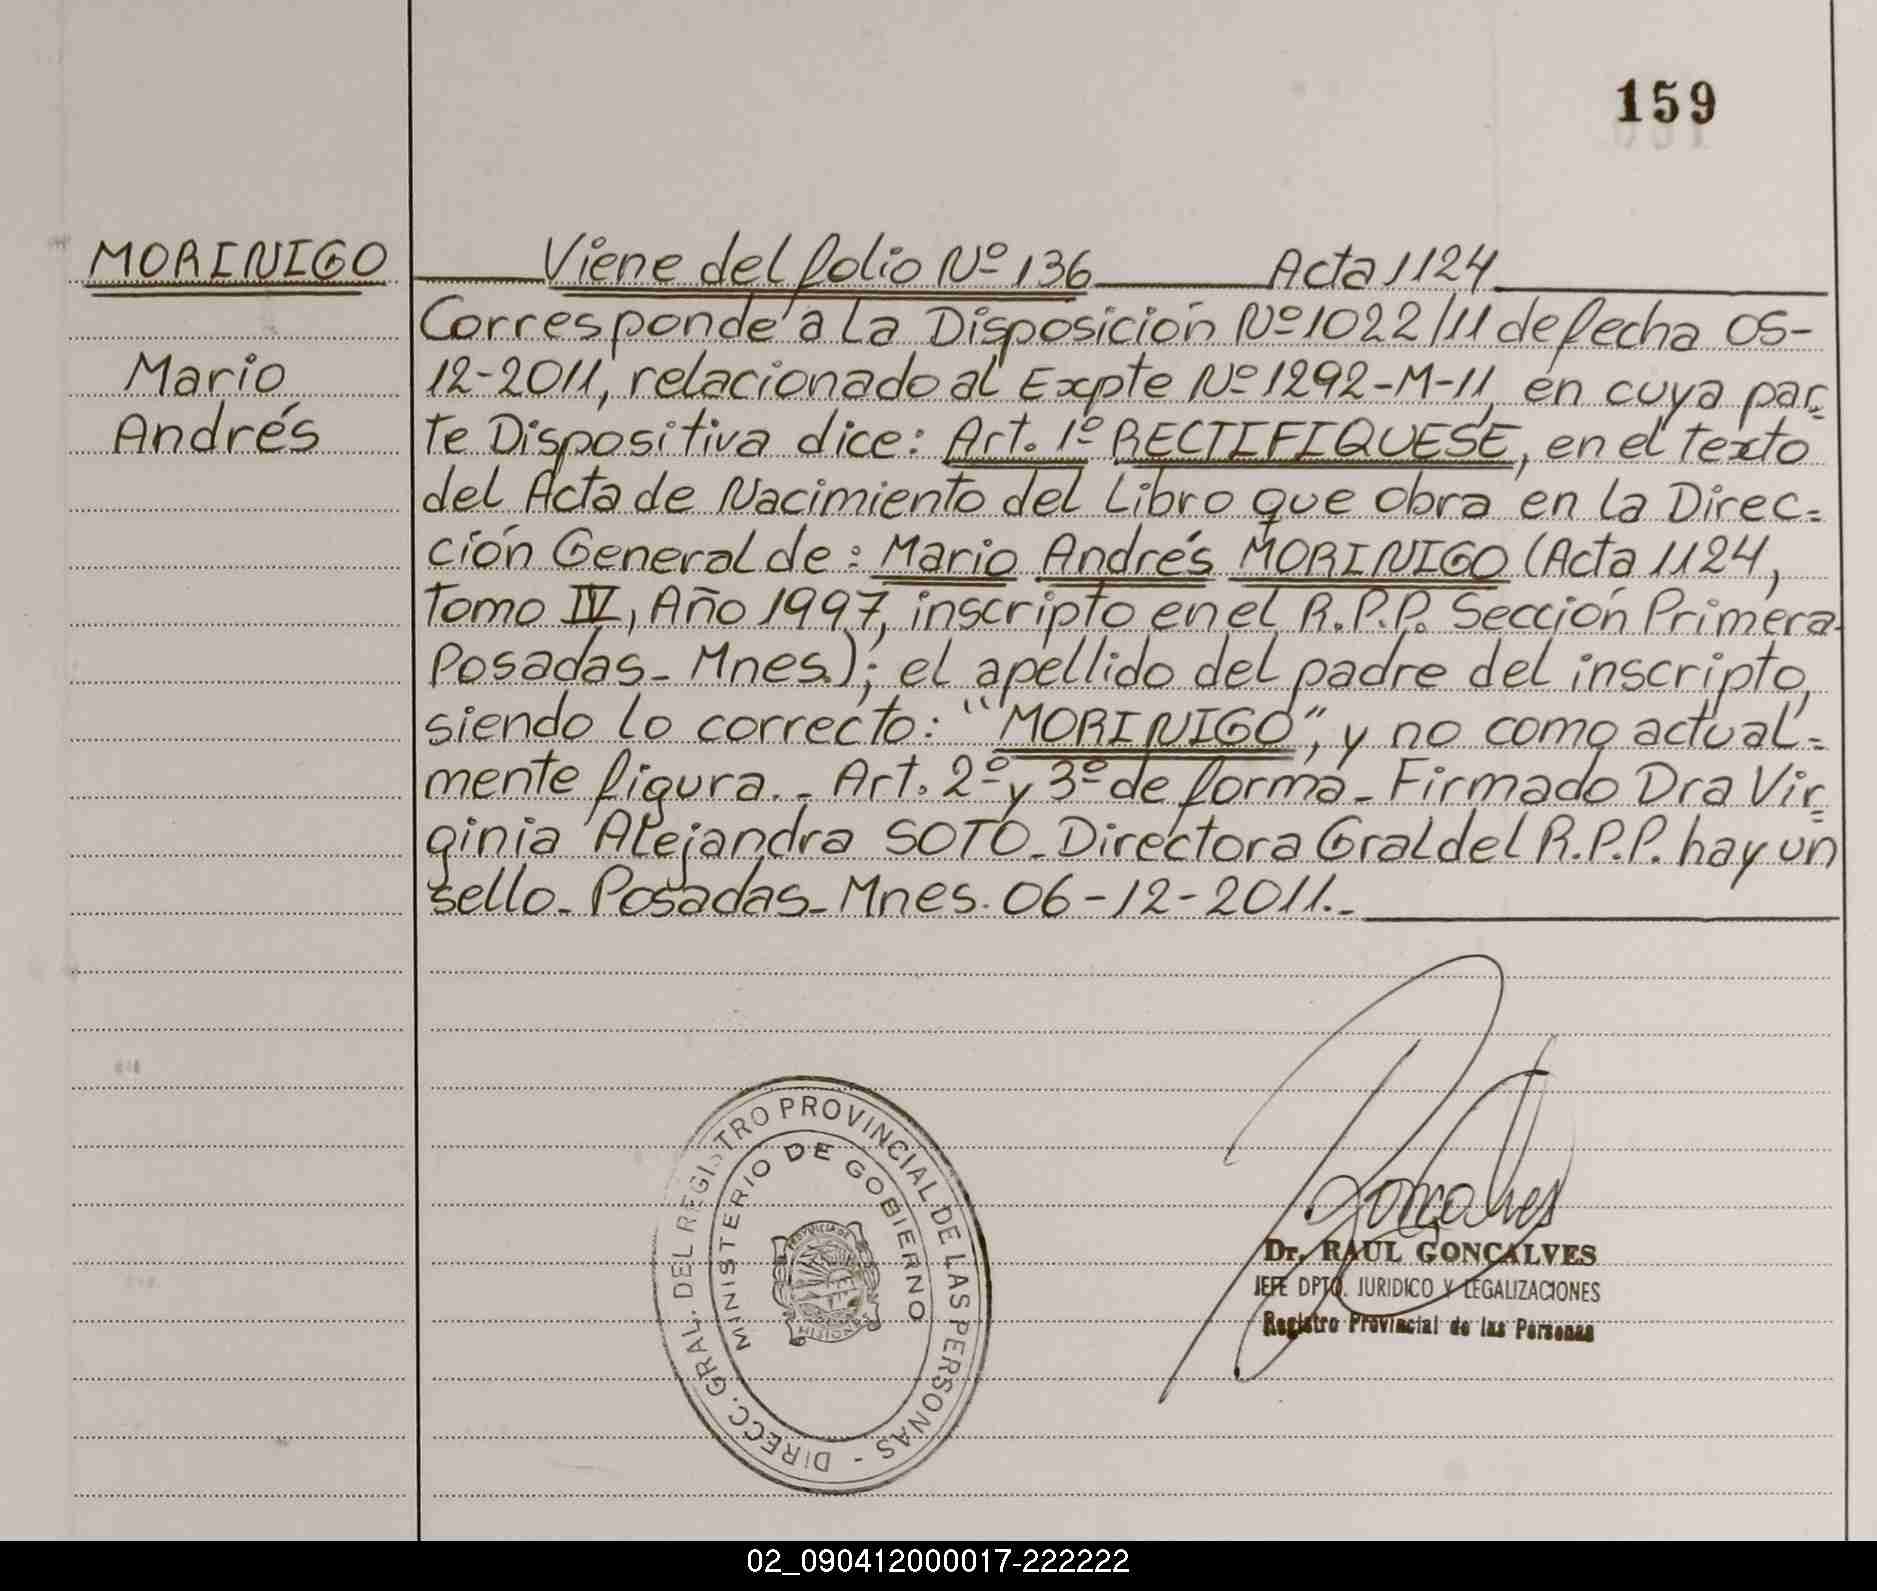 159
MORINIGO
Mario
Andrés
Viene del folio Nº 136 Acta 1124
Corresponde a la Disposición Nº 1022/11 de fecha 05-
12-2011, relacionado al Expte Nº 1292-M-11, en cuya par=
te Dispositiva dice: Art. 1º RECTIFIQUESE, en el texto
del Acta de Nacimiento del Libro que obra en la Direc=
ción General de: Mario Andrés MORINIGO (Acta 1124,
Tomo IV, Año 1997, inscripto en el R.P.P. Sección Primera-
Posadas- Mnes.); el apellido del padre del inscripto,
siendo lo correcto: "MORINIGO", y no como actual=
mente figura.- Art. 2º y 3º de forma- Firmado Dra Vir=
ginia Alejandra SOTO- Directora Gral del R.P.P. hay un
sello- Posadas- Mnes. 06-12-2011.-
DIRECC. GRAL. DEL REGISTRO PROVINCIAL DE LAS PERSONAS -
MINISTERIO DE GOBIERNO
PROVINCIA DE
MISIONES
Goncalves
Dr. RAUL GONCALVES
JEFE DPTO. JURIDICO Y LEGALIZACIONES
Registro Provincial de las Personas
02_090412000017-222222